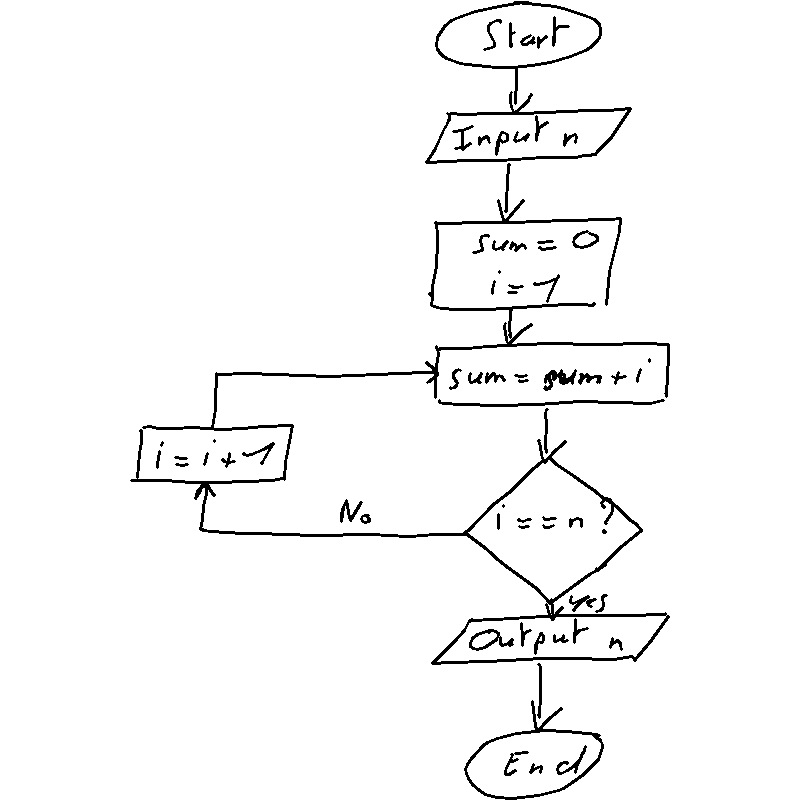 Start
Input n
sum = 0
i = 1
sum = sum + i
i = i + 1
No
i == n ?
yes
Output n
End